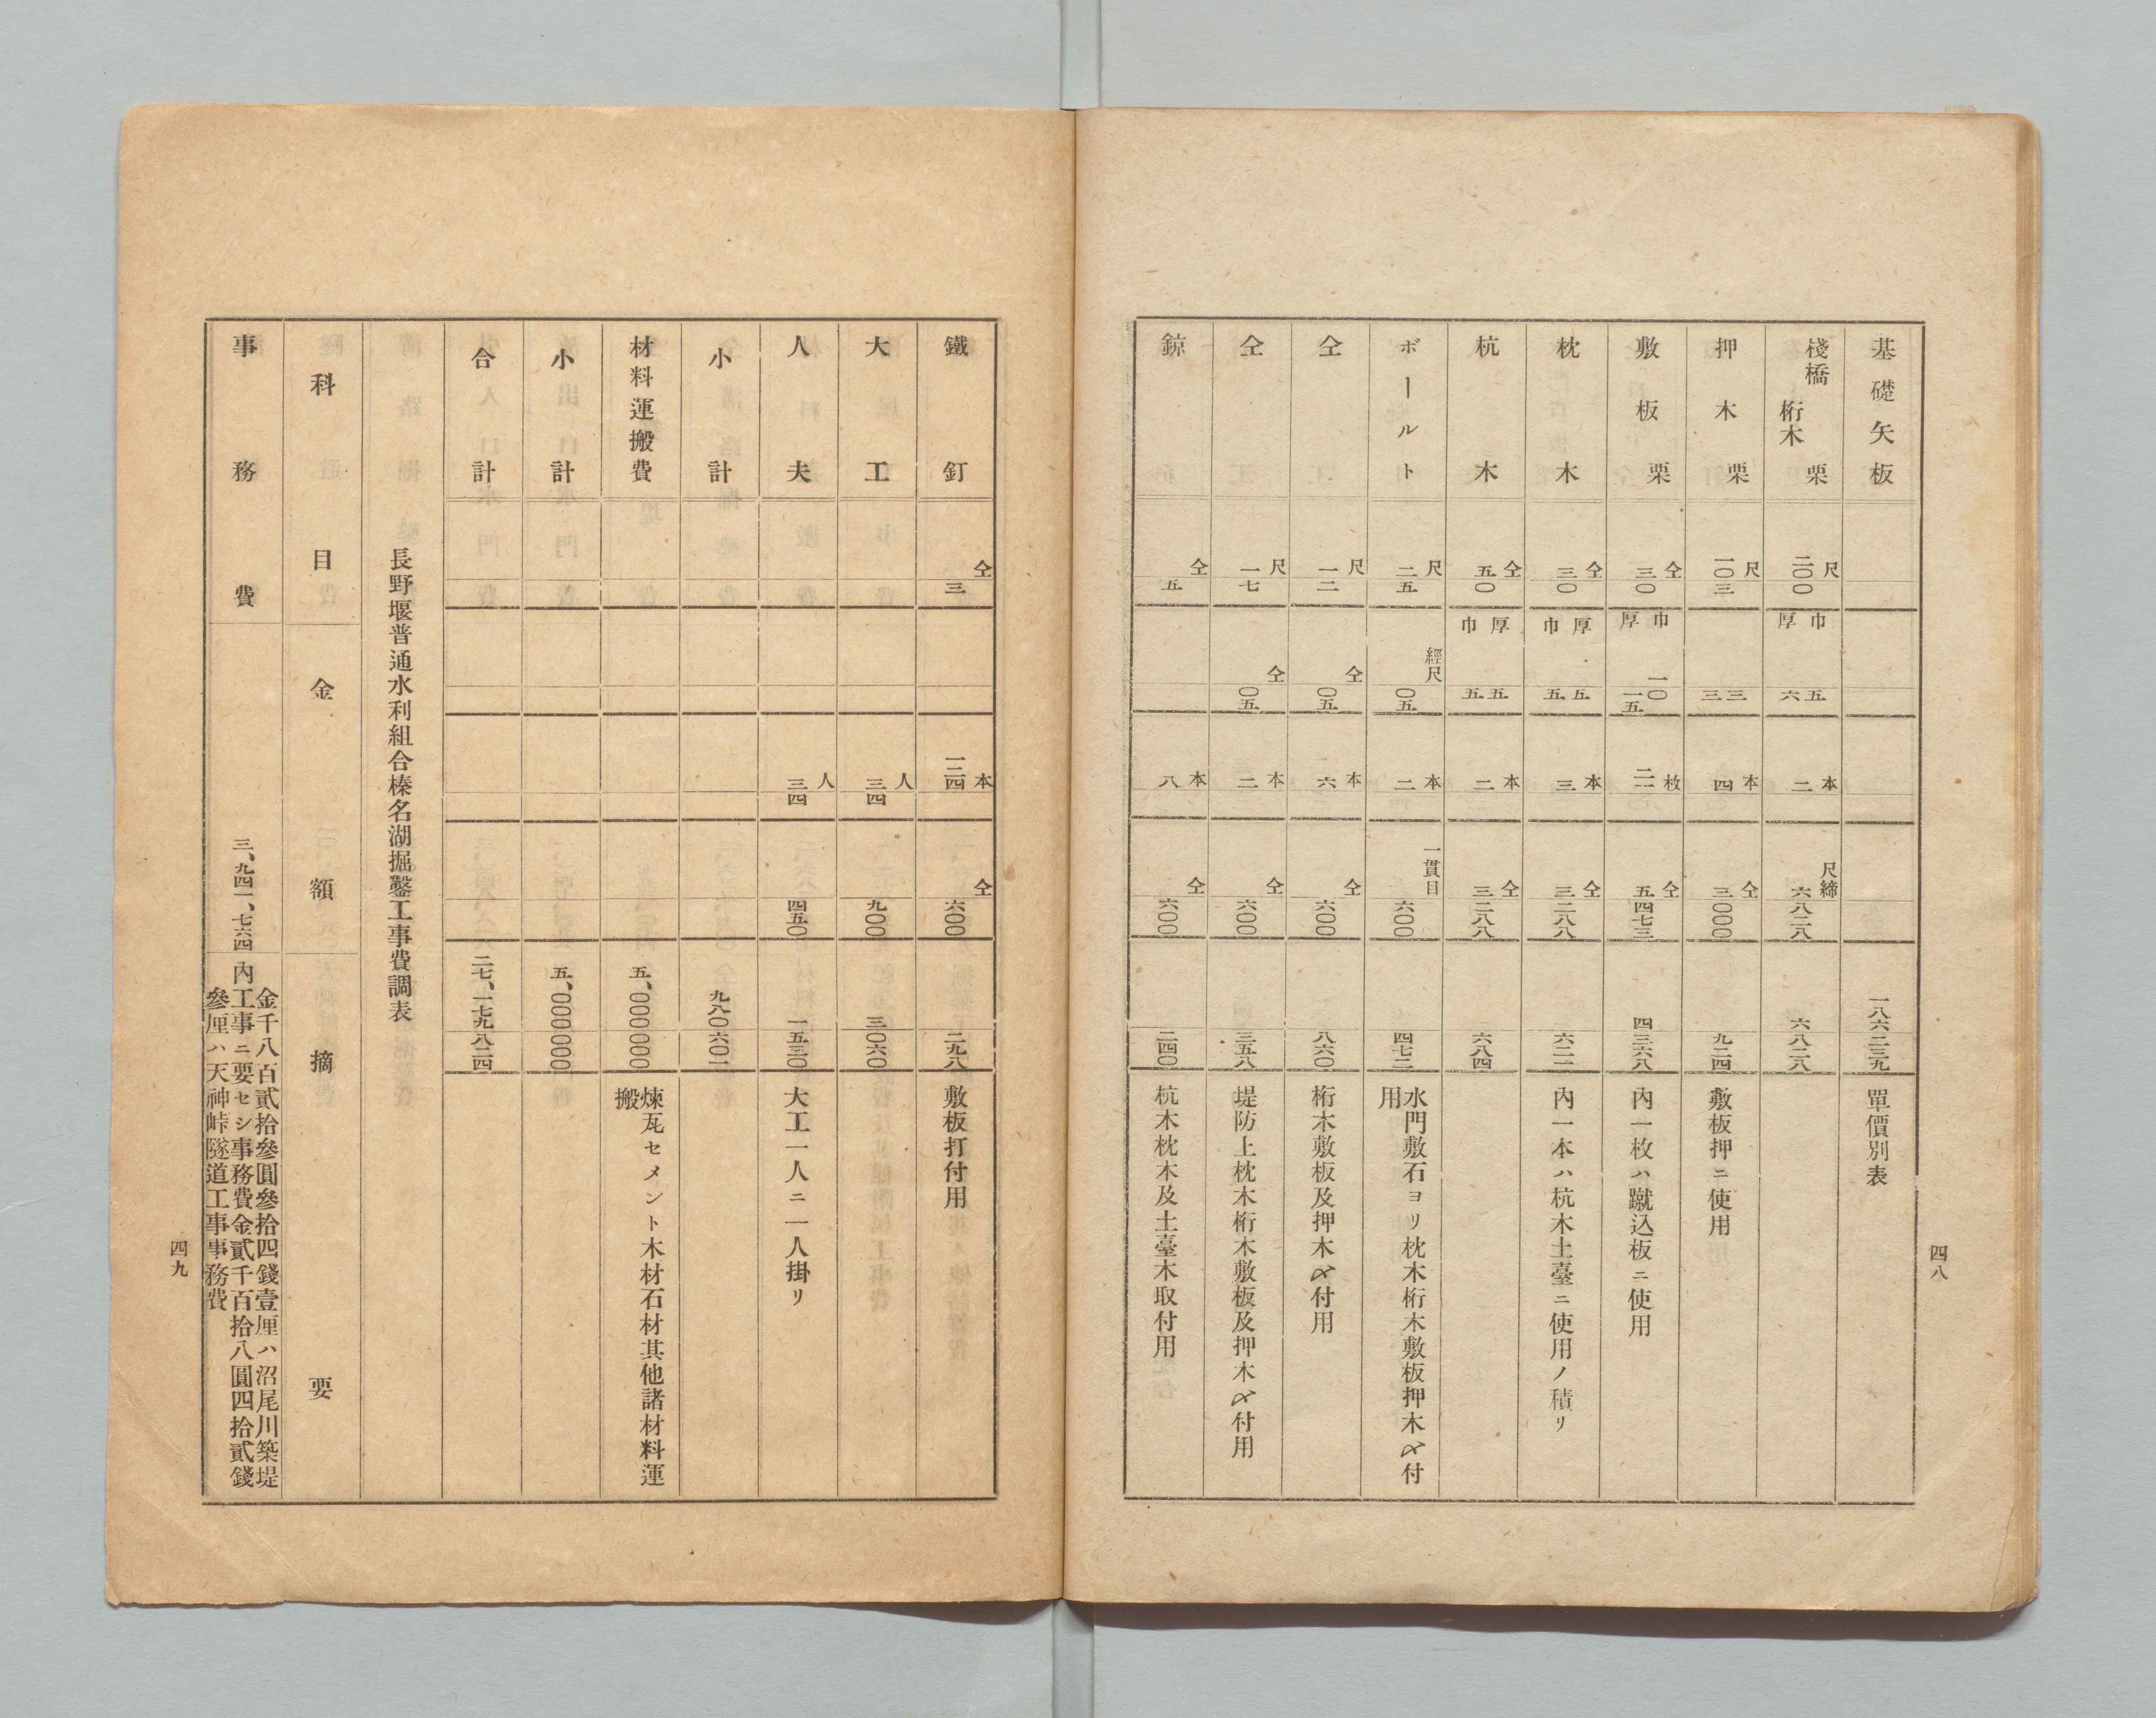 四八
基礎矢板 一八六二三九 單價別表
棧橋桁木 栗 尺 二〇〇 巾厚 五六 本 二 尺締 六八二八 六八二八
押木 栗 尺 一〇三 三三 本 四 仝 三〇〇〇 九二四 敷板押ニ使用
敷板 栗 仝 三〇 巾厚 一〇 一五 枚 二一 仝 五四七三 四三六八 內一枚ハ蹴込板ニ使用
枕木 仝 三〇 厚巾 五五 本 三 仝 三二八八 六二一 內一本ハ杭木土臺ニ使用ノ積リ
杭木 仝 五〇 厚巾 五五 本 二 仝 三二八八 六八四
ボールト 尺 二五 經尺 〇五 本 二 一貫目 六〇〇 四七二 水門敷石ヨリ枕木桁木敷板押木〆付
用
仝 尺 一二 仝 〇五 本 六 仝 六〇〇 八六〇 桁木敷板及押木〆付用
仝 尺 一七 仝 〇五 本 二 仝 六〇〇 三五八 堤防上枕木桁木敷板及押木〆付用
鎹 仝 五 本 八 仝 六〇〇 二四〇 杭木枕木及土臺木取付用
鐵釘 仝 三 本 一二四 仝 六〇〇 二九八 敷板打付用
大工 人 三四 九〇〇 三〇六〇
人夫 人 三四 四五〇 一五三〇 大工一人ニ一人掛リ
小計 九八〇六〇一
材料運搬費 五、〇〇〇〇〇〇 煉瓦セメント木材石材其他諸材料運
搬
小計 五、〇〇〇〇〇〇
合計 二七、一七九八二四
長野堰普通水利組合榛名湖掘鑿工事費調表
科目 金額 摘要
事務費 三、九四一、七六四 內
金千八百貳拾參圓參拾四錢壹厘ハ沼尾川築堤
工事ニ要セシ事務費金貳千百拾八圓四拾貳錢
參厘ハ天神峠隧道工事事務費
四九